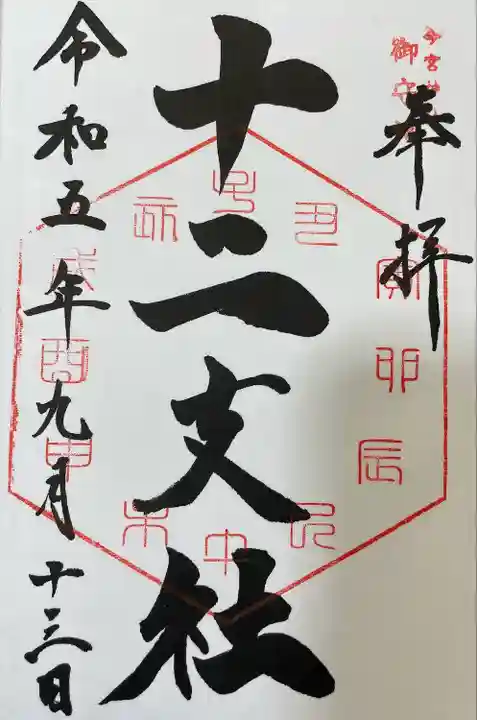 奉拝
十二支社
令和五年九月十三日
御守
子
丑
寅
卯
辰
巳
午
未
申
酉
戌
亥